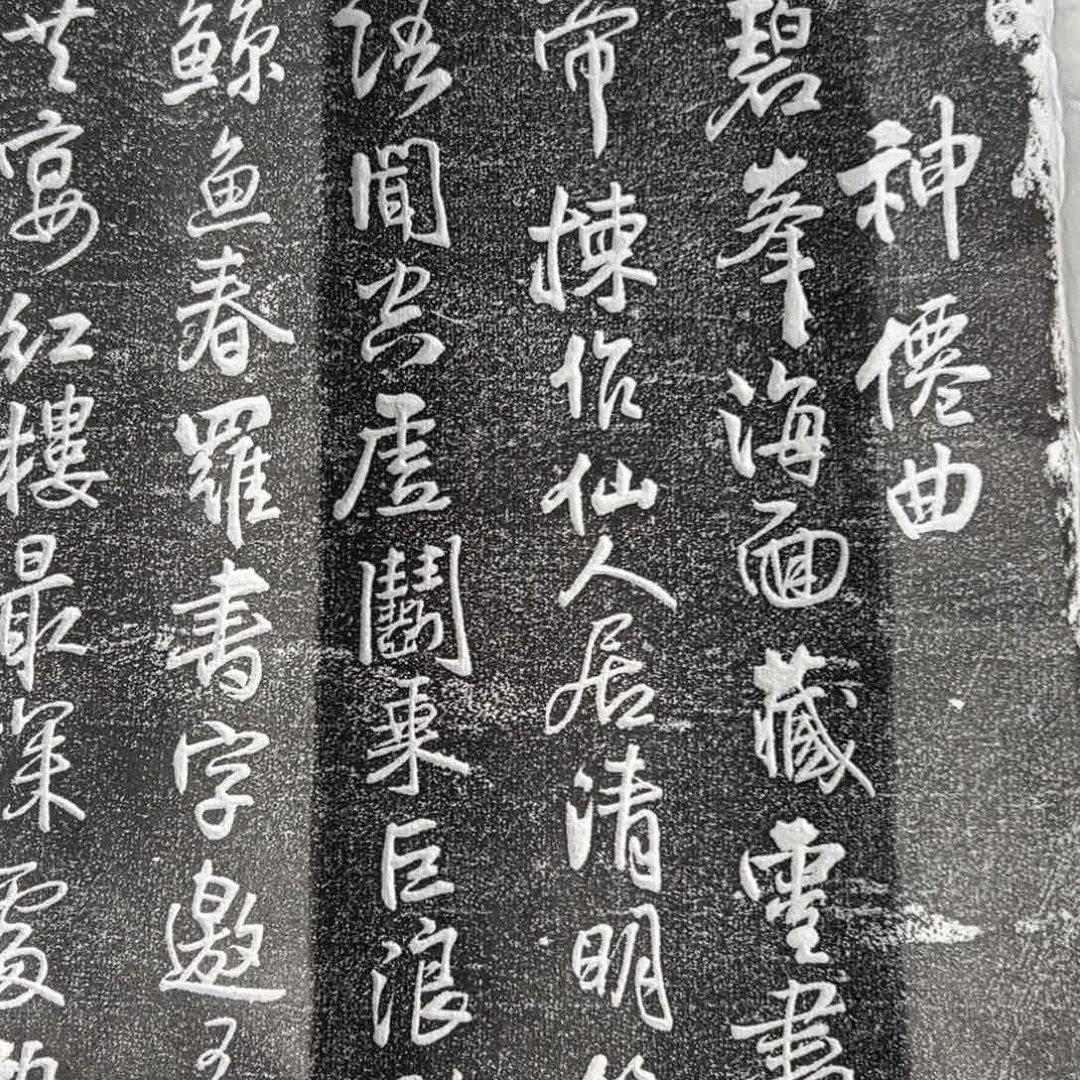 神僊曲
碧峯海面藏靈書
帝揀作仙人居清明
語聞空虛鬥乘巨浪
鯨魚春羅書字邀
共宴紅樓最深處